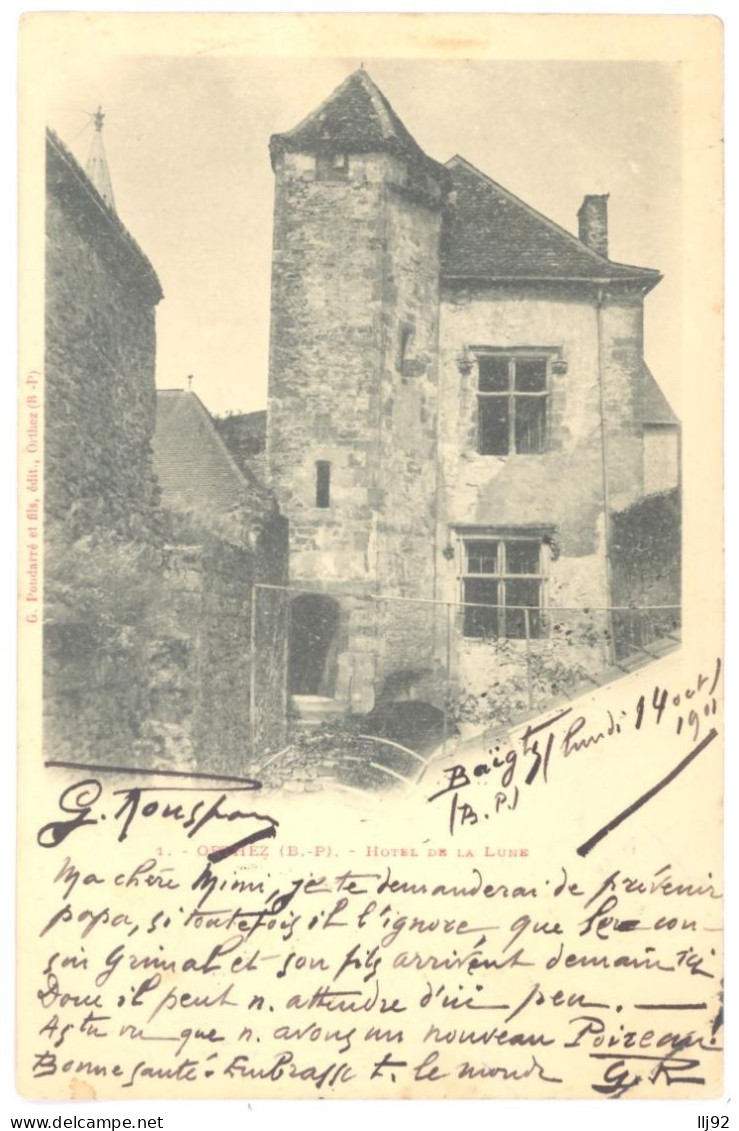 G. Poudarré et fils, édit., Orthez (B.-P)
Baïgts (lundi 14 oct)
(B.P.) 1911
1. - ORTHEZ (B.-P). - HOTEL DE LA LUNE
Ma chère Mimi, je te demanderai de prévenir
papa, si toutefois il l'ignore, que le con-
sin Grimal et son fils arrivent demain ici
Donc il peut n. attendre d'ici peu. —
As tu vu que n. avons un nouveau Poireau!
Bonne santé. Embrasse t. le monde
G. R
llj92